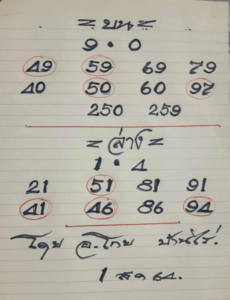 = บน =
9 • 0
49 59 69 79
40 50 60 97
250 259
= ล่าง =
1 • 4
21 51 81 91
41 46 86 94
โดย อ.โทย บ้านไร่.
1 สค 64.